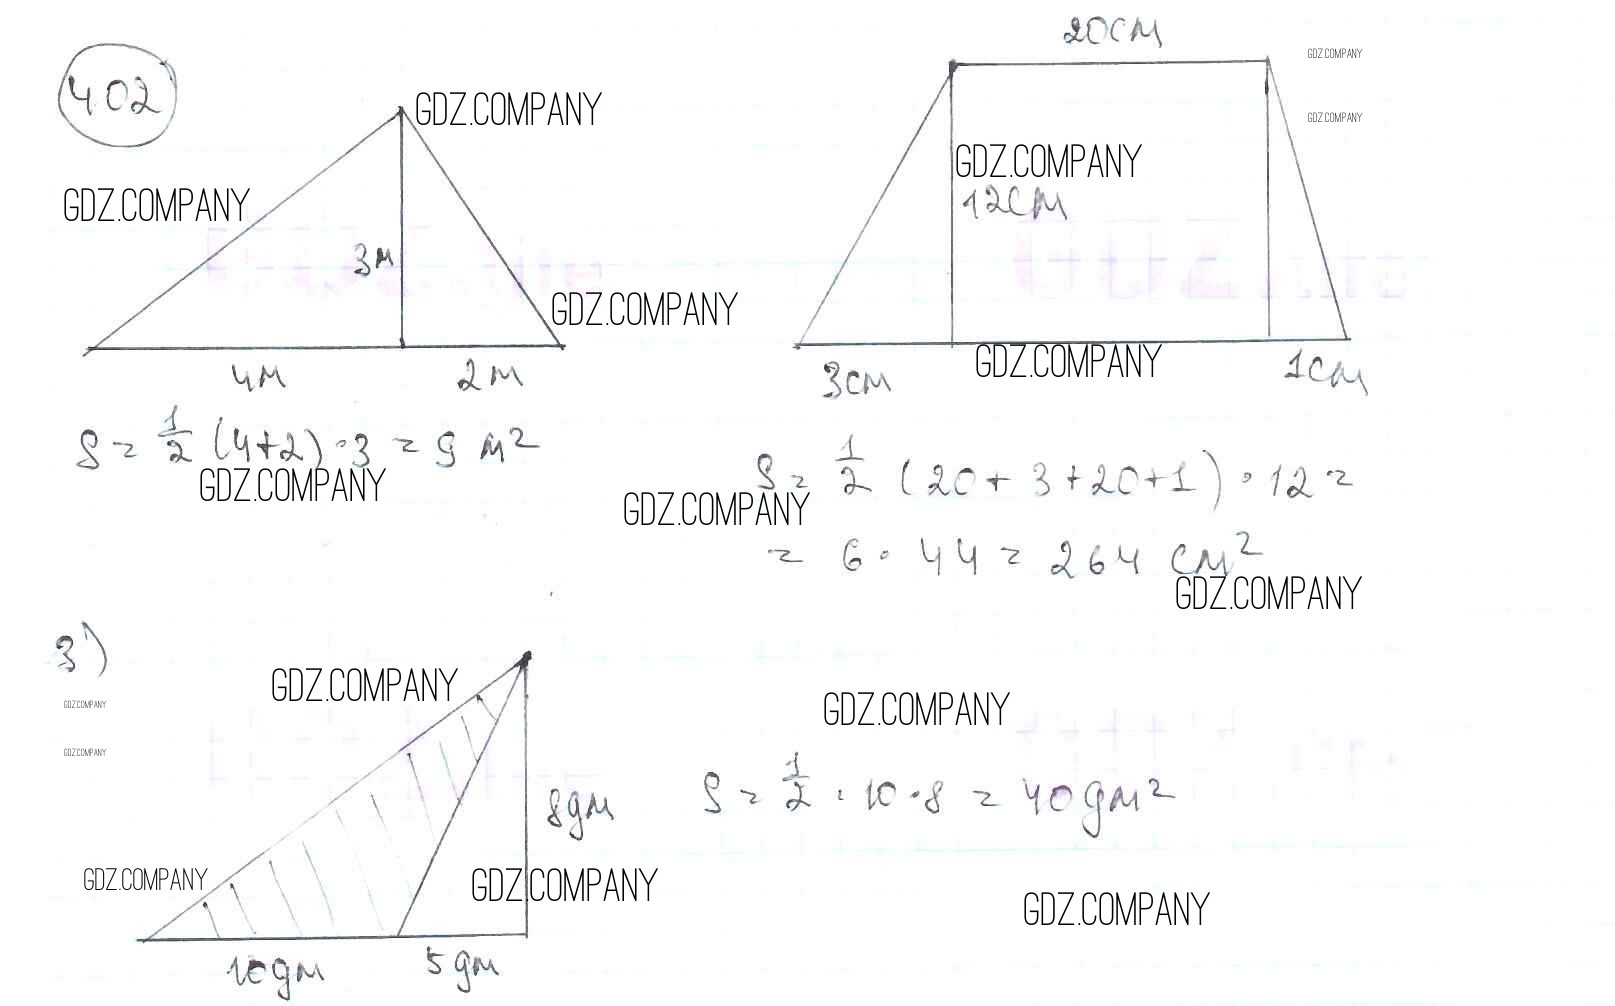 402
20см
GDZ.COMPANY
GDZ.COMPANY
GDZ.COMPANY
GDZ.COMPANY
GDZ.COMPANY
12см
3м
GDZ.COMPANY
GDZ.COMPANY
4м 2м
3см 1см
S = 1/2 (4+2) · 3 = 9 м²
GDZ.COMPANY
S = 1/2 (20 + 3 + 20 + 1) · 12 =
GDZ.COMPANY
= 6 · 44 = 264 см²
GDZ.COMPANY
3)
GDZ.COMPANY
GDZ.COMPANY
GDZ.COMPANY
GDZ.COMPANY
8дм
S = 1/2 · 10 · 8 = 40 дм²
GDZ.COMPANY
GDZ.COMPANY
GDZ.COMPANY
10дм 5дм